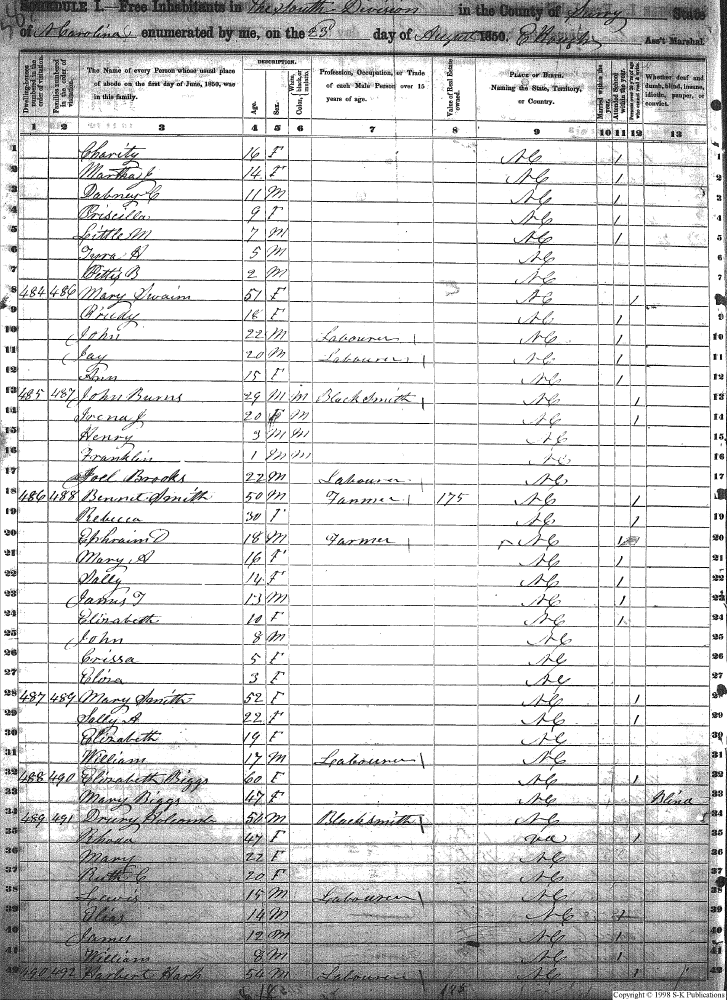 SCHEDULE I.—Free Inhabitants in The South Division in the County of Surry State
of N Carolina enumerated by me, on the 23 day of August 1850. Ass't Marshal.
Dwelling-houses numbered in the order of visitation.
Families numbered in the order of visitation.
The Name of every Person whose usual place of abode on the first day of June, 1850, was in this family.
DESCRIPTION.
Age.
Sex.
Color, White, black, or mulatto.
Profession, Occupation, or Trade of each Male Person over 15 years of age.
Value of Real Estate owned.
PLACE OF BIRTH. Naming the State, Territory, or Country.
Married within the year.
Attended School within the year.
Whether deaf and dumb, blind, insane, idiotic, pauper, or convict.
1 2 3 4 5 6 7 8 9 10 11 12 13
1 Charity 16 F NC / 1
2 Martha J 14 F NC / 2
3 Dabney C 11 M NC / 3
4 Priscilla 9 F NC / 4
5 Little M 7 M NC / 5
6 5 M NC 6
7 2 M NC 7
8 484 486 Mary Swaim 51 F NC /
9 18 F NC / 9
10 John 22 M Labourer NC / 10
11 Jay 20 M Labourer NC / 11
12 Ann 15 F NC / 12
13 485 487 John Burns 29 M M Blacksmith NC / 13
14 Irena J 20 F M NC / 14
15 Henry 3 M M NC 15
16 Franklin 1 M M NC 16
17 Joel Brooks 22 M Labourer NC 17
18 486 488 Bennet Smith 50 M Farmer 175 NC / 18
19 Rebecca 30 F NC / 19
20 Ephraim D 18 M Farmer NC / 20
21 Mary A 16 F NC / 21
22 Sally 14 F NC / 22
23 James T 13 M NC / 23
24 Elizabeth 10 F NC / 24
25 John 8 M NC 25
26 Crissa 5 F NC 26
27 3 F NC 27
28 487 489 Mary Smith 52 F NC /
29 Sally A 22 F NC / 29
30 Elizabeth 19 F NC 30
31 William 17 M Labourer NC 31
32 488 490 Elizabeth Biggs 60 F NC / 32
33 Mary Biggs 47 F NC Blind 33
34 489 491 Drury Holcomb 54 M Blacksmith NC
35 Rhoda 47 F Va / 35
36 Mary 22 F NC 36
37 Ruth C 20 F NC 37
38 Lewis 15 M Labourer NC 38
39 Elias 14 M NC / 39
40 James 12 M NC / 40
41 William 8 M NC / 41
42 490 492 Harbert 54 M Labourer NC / 42
Copyright © 1998 S-K Publications